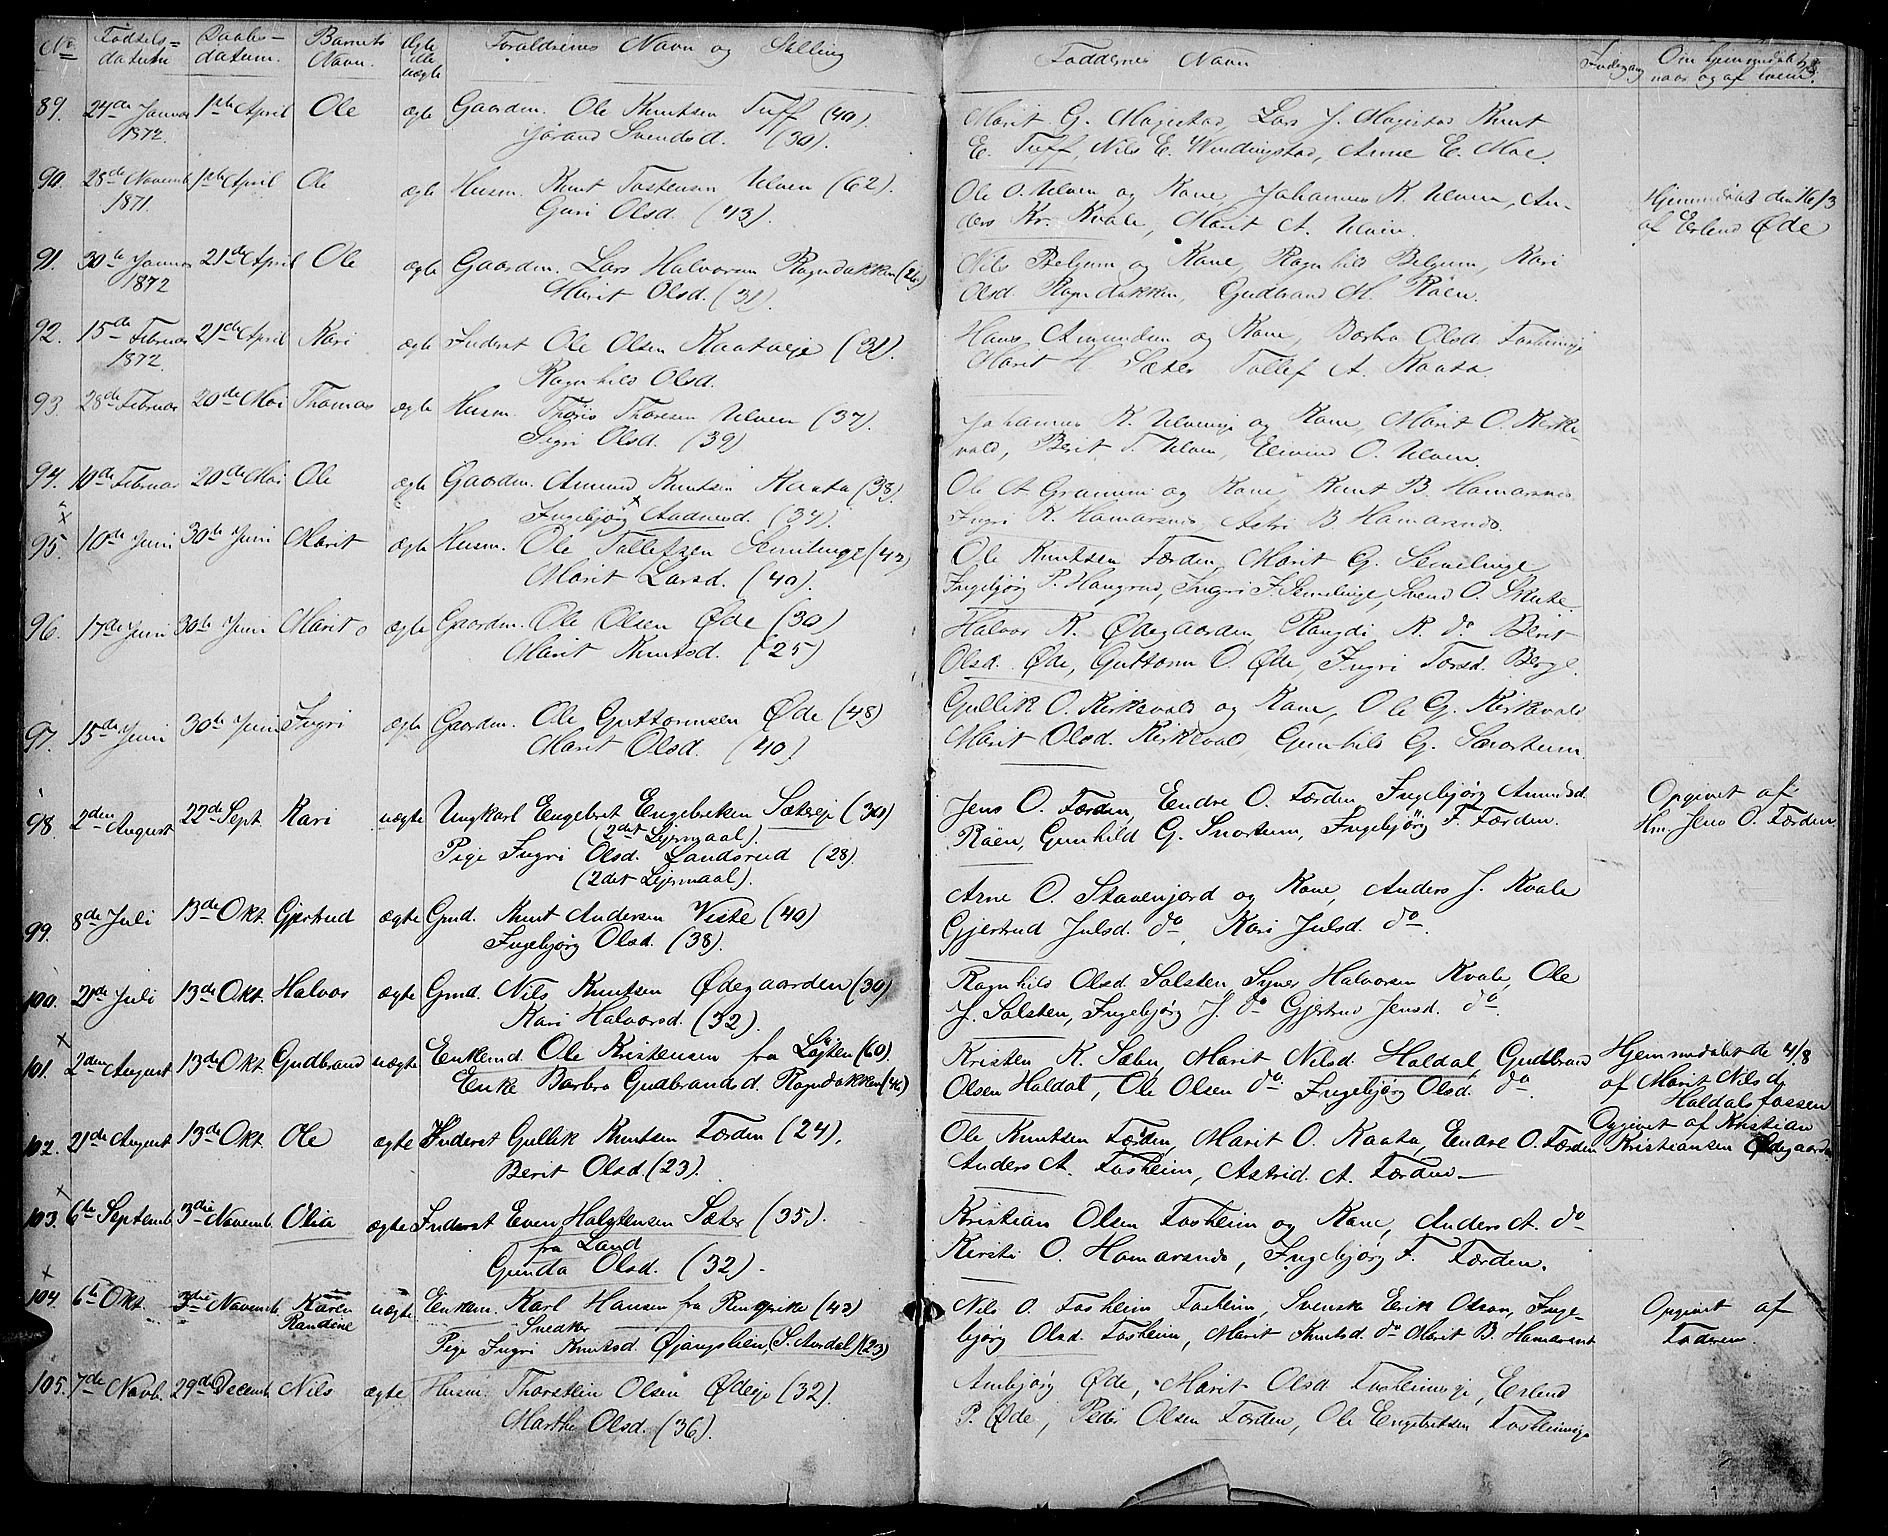 No Fødsels= datum Daabs= datum. Barnets Navn. Ægte eller uægte Foraldrenes Navn og Stilling Faddernes Navn Indgang Om hjemmedøbt naar og af hvem.
89. 24de Januar 1872. 1ste April Ole ægte Gaardm. Ole Knutsen Tuff (40).
Jørand Svendsd. (30).
Marit G. Magistad, Lars J. Magistad Knut
E. Tuff, Nils E. Windingstad, Arne E. Moe.
90. 28de Novemb 1871. 1ste April Ole ægte Husm. Knut Tostensen Ulven (62).
Guri Olsd. (43).
Ole O. Ulven og Kone, Johannes K. Ulven, An-
ders Kr. Kvale, Marit A. Ulven.
Hjemmdøbt den 16/3
af Erlend Øde
91. 30te Januar 1872 21de April Ole ægte Gaardm. Lars Halvorsen Ragndakken (26)
Marit Olsd. (31).
Nils Belgum og Kone, Ragnhild Belgum, Kari
Olsd. Ragndakken, Gudbrand M. Røen.
92. 15de Februar 1872. 21de April Kari ægte Inderst Ole Olsen Kaataeje (31).
Ragnhild Olsd.
Hans Amundsen og Kone, Barbro Olsd. Fosheimeje
Marit H Sæter Tollef A. Kaata.
93 28de Februar 20de Mai Thomas ægte Husm. Thoris Thoresen Ulven (37)
Sigri Olsd. (39)
Johannes K. Ulveneje og Kone, Marit O. Kirke-
vold, Berit T. Ulven, Eivind O. Ulven.
94. 10de Februar 20de Mai Ole ægte Gaardm. Amund Knutsen Kaata (38).
Ingebjørg Andersd. (34).
Ole A Grammi og Kone Knut B. Hamarsnes
Ingri K. Hamarsnes, Astri B Hamarsnes.
x
95. 10de Juni 30te Juni Marit ægte Husm. Ole Tollefsen Semeleinge (42)
Marit Larsd. (40).
Ole Knutsen Førden, Marit G. Semelinge
Ingebjørg P. Haugrud, Ingri T. Semelinge, Svend O. Skute.
96. 17de Juni 30te Juni Marit ægte Gaardm. Ole Olsen Øde (30)
Marit Knutsd. (25)
Halvor K. Ødegaarden, Rangdi K. do Berit
Olsd. Øde, Guttorm O. Øde, Ingri Torsd. Berge
97. 15de Juni 30te Juni Ingri ægte Gaardm. Ole Guttormsen Øde (48)
Marit Olsd. (40)
Gullik O. Kirkevold og Kone, Ole G. Kirkevold
Marit Olsd. Kirkevold, Gunhild G. Snortum
98. 2den August 22de Sept. Kari uægte Ungkarl Engebret Engebretsen Sætereje (30)
(2det Lejermaal).
Pige Ingri Olsd. Landsrud (28).
(2det Lejermaal).
Jens O. Førden, Endre O. Førden Ingebjørg Amundsd.
Røen, Gunhild G. Snortum, Ingebjørg F. Førden.
Opgivet af
Hm. Jens O. Førden
99. 8de Juli 13de Okt. Gjertrud ægte Gmd. Knut Andersen Viste (40)
Ingebjørg Olsd. (38).
Arne O. Stavenjord og Kone, Anders J. Kvale
Gjertrud Julsd. do, Kari Julsd. do.
100. 21de Juli 13de Okt. Halvor ægte Gmd. Nils Knutsen Ødegaarden (30)
Kari Halvorsd. (32).
Ragnhild Olsd. Solsten, Syver Halvorsen Kvale, Ole
J. Solsten, Ingebjørg J. do Gjertrud Jensd. do.
x
101. 2den August 13de Okt Gudbrand uægte Enkemd. Ole Kristensen fra Løjten (60).
Enke Barbro Gudbrandsd. Ragndakken (46)
Kristen K. Sæbu, Marit Nilsd. Haldal, Gudbrand
Olsen Haldal, Ole Olsen do. Ingebjørg Olsd. do.
Hjemmdøbt de 4/8
af Marit Nilsd.
Haldalsfossen
102. 21de August 13de Okt. Ole ægte Inderst Gullik Knutsen Førden (24).
Berit Olsd (23).
Ole Knutsen Førden, Marit O. Kaata, Endre O. Førden
Anders A. Fosheim, Astrid A. Førden—
Opgivet af Kristian
Kristiansen Ødegaarden
x
103. 6te Septemb. 3die Novemb. Olia ægte Inderst Even Halgtensen Sæter (35).
fra Land
Gunda Olsd. (32).
Kristian Olsen Fosheim og Kone, Anders A. do
Kirsti O. Hamarsnes, Ingebjørg F. Førden.
x
104. 6te Okt. 3die Novemb. Karen Randine uægte Enkem. Karl Hansen fra Ringerike (42)
Snedker
Pige Ingri Knutsd. Øjangslien, (S. Aurdal) (23)
Nils O. Fosheim Fosheim, Svenske Erik Olson, Inge-
bjørg Olsd. Fosheim, Marit Knutsd. do Marit B. Hamarsnes
Opgivet af
Faderen.
105. 7de Novb. 29de Decemb. Nils ægte Husm. Thorstein Olsen Ødeeje (32).
Marthe Olsd. (36).
Ambjørg Øde, Marit Olsd Fosheimeje, Erlend
P. Øde, Peder Olsen Førden, Ole Engebretsen Fosheimeje